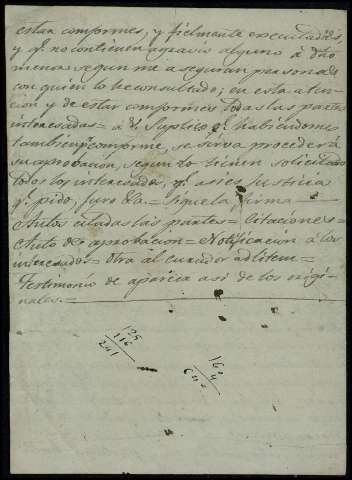 estan comformes, y fielmente executadas,
y qe. no contienen agravio alguno á dho
menor segun me aseguran personas
con quien lo he consultado; en esta aten-
cion y de estar comformes todas las partes
interesadas = á V. Suplico qe. habiendome
tambien pr. comforme, se sirva proceder á
su aprobacion, segun lo tienen solicitado
todos los interesados, qe. asi es Justicia
qe. pido, juro &a. = Sigue la firma =
Autos citadas las partes = Citaciones =
Auto de aprobacion = Notificacion á los
interesados = Otra al curador ad litem =
Testimonio de aparica asi de los origi-
nales. =
125
116
241
160
4
640